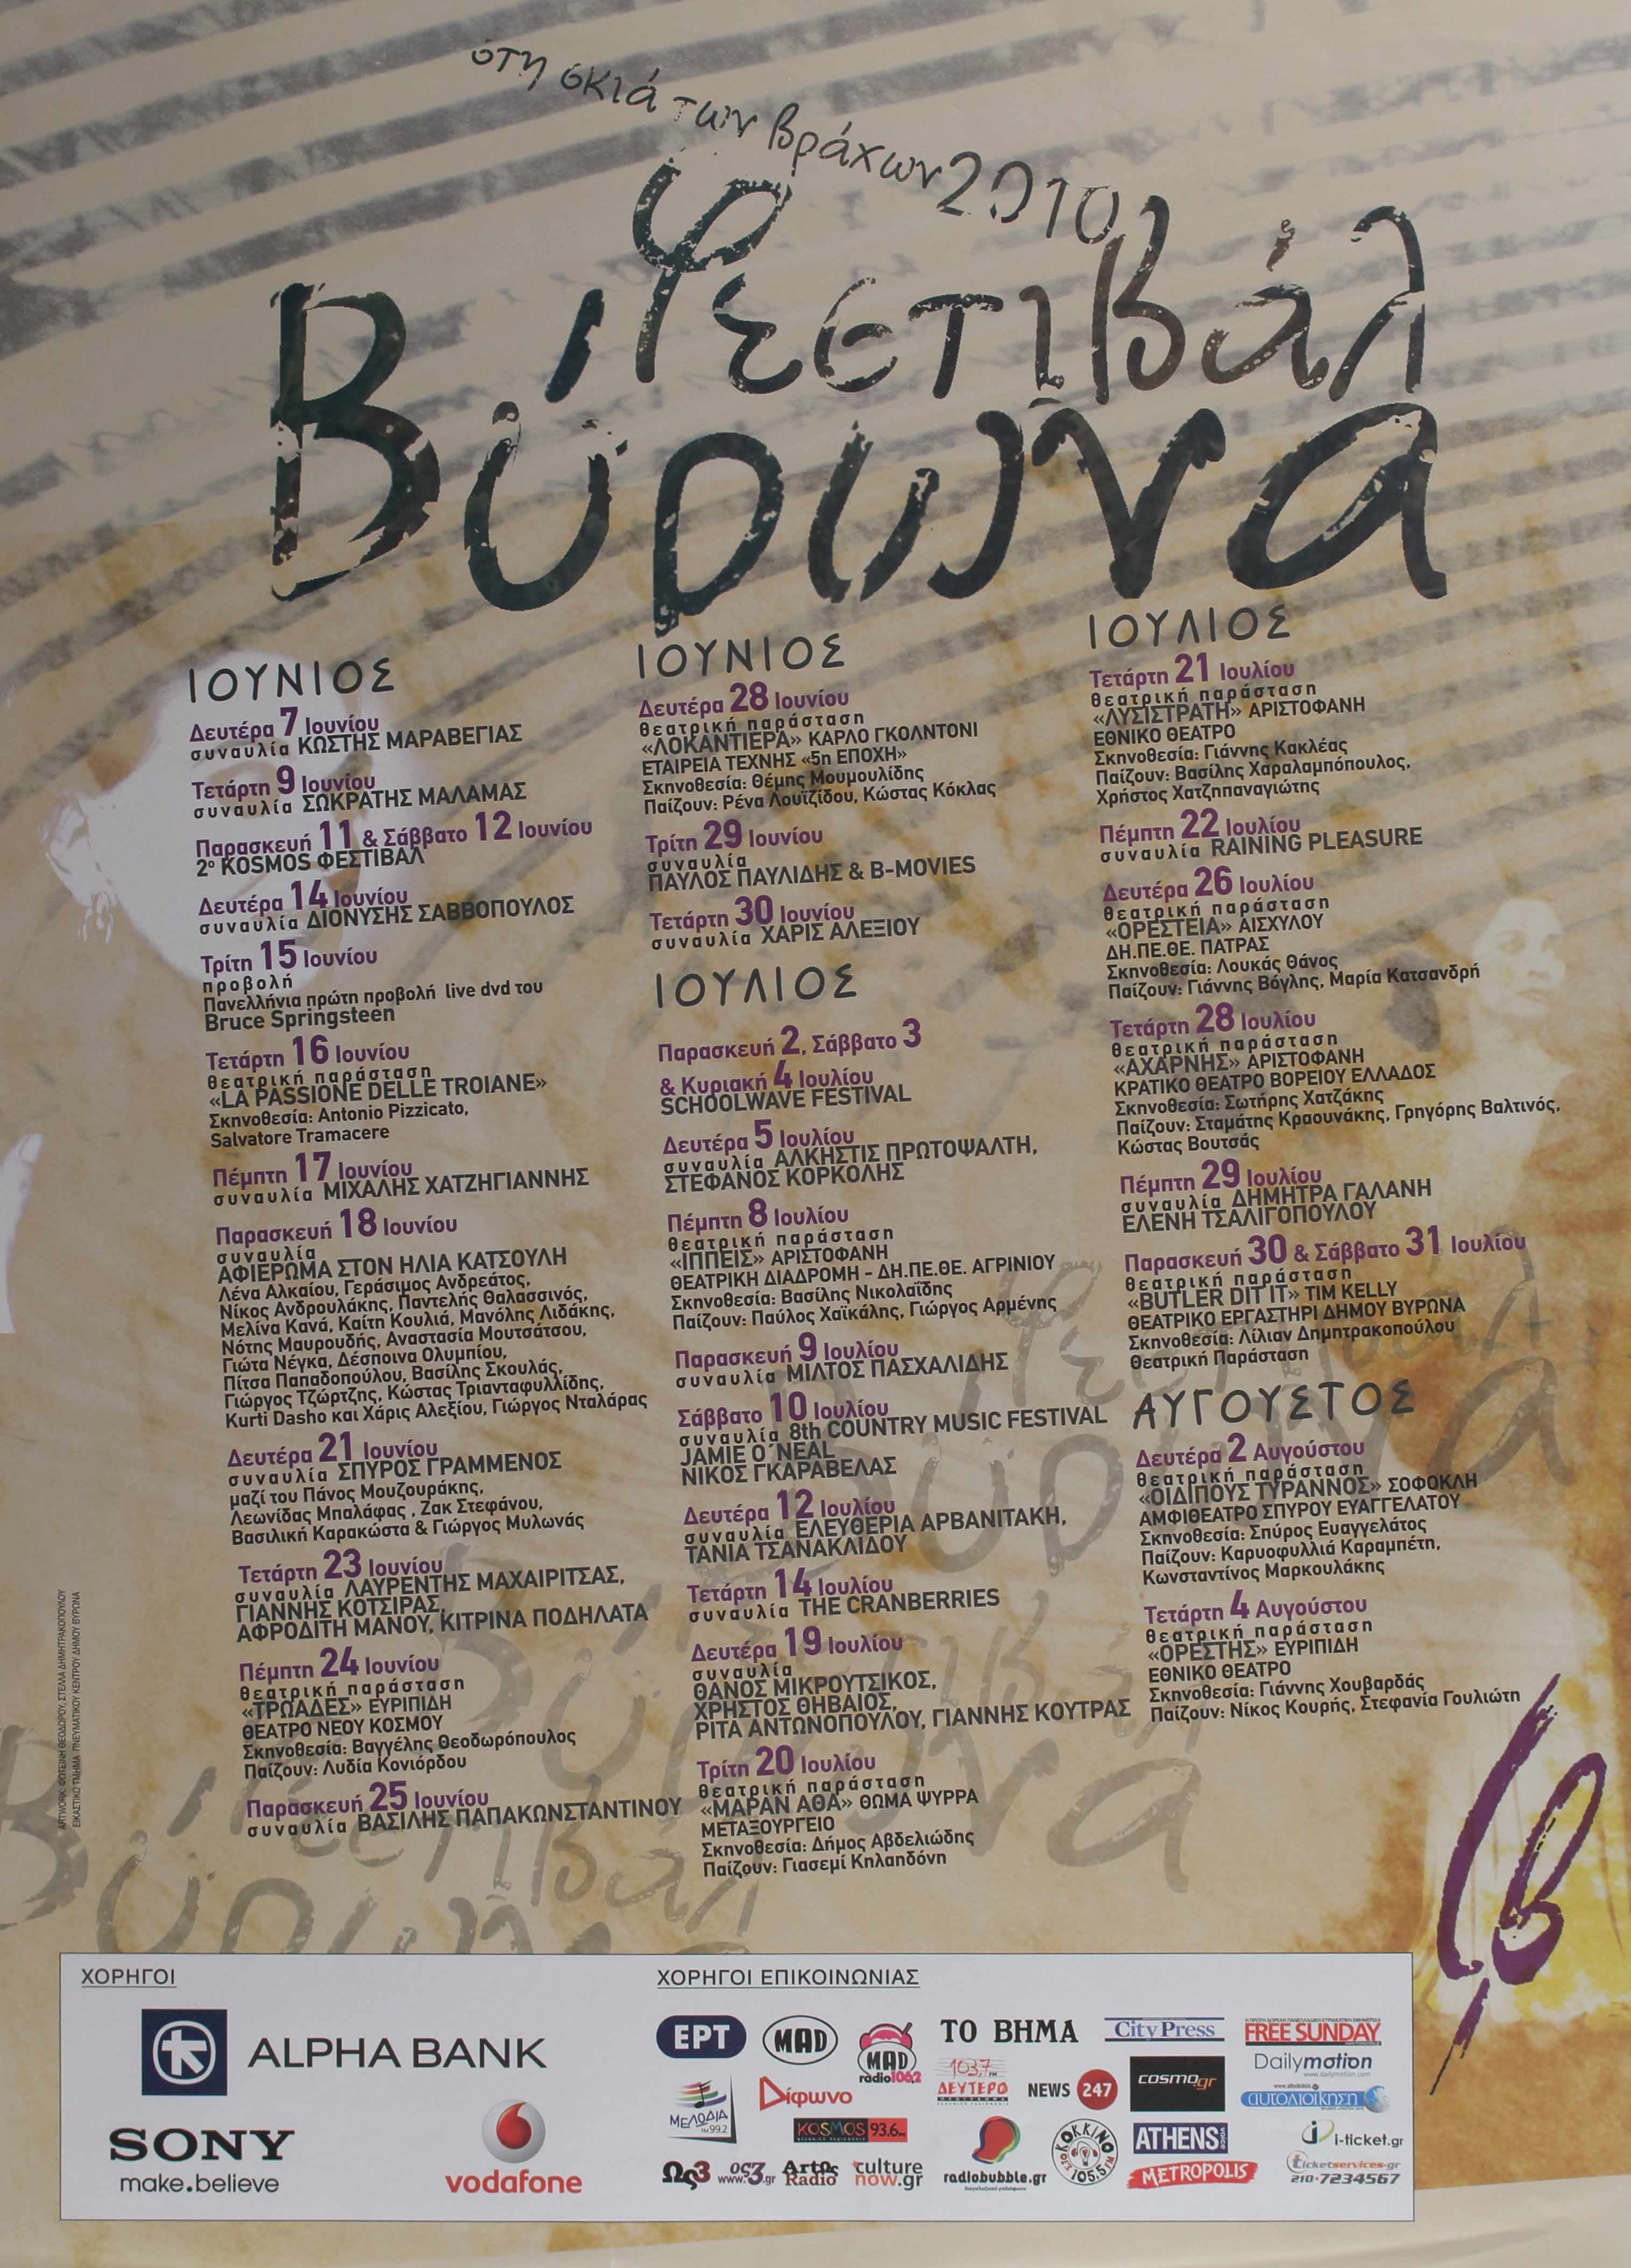 στη σκιά των βράχων 2010
Φεστιβάλ
Βύρωνα
ΙΟΥΝΙΟΣ
Δευτέρα 7 Ιουνίου
συναυλία ΚΩΣΤΗΣ ΜΑΡΑΒΕΓΙΑΣ
Τετάρτη 9 Ιουνίου
συναυλία ΣΩΚΡΑΤΗΣ ΜΑΛΑΜΑΣ
Παρασκευή 11 & Σάββατο 12 Ιουνίου
2º KOSMOS ΦΕΣΤΙΒΑΛ
Δευτέρα 14 Ιουνίου
συναυλία ΔΙΟΝΥΣΗΣ ΣΑΒΒΟΠΟΥΛΟΣ
Τρίτη 15 Ιουνίου
προβολή
Πανελλήνια πρώτη προβολή live dvd του
Bruce Springsteen
Τετάρτη 16 Ιουνίου
θεατρική παράσταση
«LA PASSIONE DELLE TROIANE»
Σκηνοθεσία: Antonio Pizzicato,
Salvatore Tramacere
Πέμπτη 17 Ιουνίου
συναυλία ΜΙΧΑΛΗΣ ΧΑΤΖΗΓΙΑΝΝΗΣ
Παρασκευή 18 Ιουνίου
συναυλία
ΑΦΙΕΡΩΜΑ ΣΤΟΝ ΗΛΙΑ ΚΑΤΣΟΥΛΗ
Λένα Αλκαίου, Γεράσιμος Ανδρεάτος,
Νίκος Ανδρουλάκης, Παντελής Θαλασσινός,
Μελίνα Κανά, Καίτη Κουλιά, Μανόλης Λιδάκης,
Νότης Μαυρουδής, Αναστασία Μουτσάτσου,
Γιώτα Νέγκα, Δέσποινα Ολυμπίου,
Πίτσα Παπαδοπούλου, Βασίλης Σκουλάς,
Γιώργος Τζώρτζης, Κώστας Τριανταφυλλίδης,
Kurti Dasho και Χάρις Αλεξίου, Γιώργος Νταλάρας
Δευτέρα 21 Ιουνίου
συναυλία ΣΠΥΡΟΣ ΓΡΑΜΜΕΝΟΣ
μαζί του Πάνος Μουζουράκης,
Λεωνίδας Μπαλάφας , Ζακ Στεφάνου,
Βασιλική Καρακώστα & Γιώργος Μυλωνάς
Τετάρτη 23 Ιουνίου
συναυλία ΛΑΥΡΕΝΤΗΣ ΜΑΧΑΙΡΙΤΣΑΣ,
ΓΙΑΝΝΗΣ ΚΟΤΣΙΡΑΣ,
ΑΦΡΟΔΙΤΗ ΜΑΝΟΥ, ΚΙΤΡΙΝΑ ΠΟΔΗΛΑΤΑ
Πέμπτη 24 Ιουνίου
θεατρική παράσταση
«ΤΡΩΑΔΕΣ» ΕΥΡΙΠΙΔΗ
ΘΕΑΤΡΟ ΝΕΟΥ ΚΟΣΜΟΥ
Σκηνοθεσία: Βαγγέλης Θεοδωρόπουλος
Παίζουν: Λυδία Κονιόρδου
Παρασκευή 25 Ιουνίου
συναυλία ΒΑΣΙΛΗΣ ΠΑΠΑΚΩΝΣΤΑΝΤΙΝΟΥ
ΙΟΥΝΙΟΣ
Δευτέρα 28 Ιουνίου
θεατρική παράσταση
«ΛΟΚΑΝΤΙΕΡΑ» ΚΑΡΛΟ ΓΚΟΛΝΤΟΝΙ
ΕΤΑΙΡΕΙΑ ΤΕΧΝΗΣ «5η ΕΠΟΧΗ»
Σκηνοθεσία: Θέμης Μουμουλίδης
Παίζουν: Ρένα Λουϊζίδου, Κώστας Κόκλας
Τρίτη 29 Ιουνίου
συναυλία
ΠΑΥΛΟΣ ΠΑΥΛΙΔΗΣ & B-MOVIES
Τετάρτη 30 Ιουνίου
συναυλία ΧΑΡΙΣ ΑΛΕΞΙΟΥ
ΙΟΥΛΙΟΣ
Παρασκευή 2, Σάββατο 3
& Κυριακή 4 Ιουλίου
SCHOOLWAVE FESTIVAL
Δευτέρα 5 Ιουλίου
συναυλία ΑΛΚΗΣΤΙΣ ΠΡΩΤΟΨΑΛΤΗ,
ΣΤΕΦΑΝΟΣ ΚΟΡΚΟΛΗΣ
Πέμπτη 8 Ιουλίου
θεατρική παράσταση
«ΙΠΠΕΙΣ» ΑΡΙΣΤΟΦΑΝΗ
ΘΕΑΤΡΙΚΗ ΔΙΑΔΡΟΜΗ - ΔΗ.ΠΕ.ΘΕ. ΑΓΡΙΝΙΟΥ
Σκηνοθεσία: Βασίλης Νικολαΐδης
Παίζουν: Παύλος Χαϊκάλης, Γιώργος Αρμένης
Παρασκευή 9 Ιουλίου
συναυλία ΜΙΛΤΟΣ ΠΑΣΧΑΛΙΔΗΣ
Σάββατο 10 Ιουλίου
συναυλία 8th COUNTRY MUSIC FESTIVAL
JAMIE O´NEAL
ΝΙΚΟΣ ΓΚΑΡΑΒΕΛΑΣ
Δευτέρα 12 Ιουλίου
συναυλία ΕΛΕΥΘΕΡΙΑ ΑΡΒΑΝΙΤΑΚΗ,
ΤΑΝΙΑ ΤΣΑΝΑΚΛΙΔΟΥ
Τετάρτη 14 Ιουλίου
συναυλία THE CRANBERRIES
Δευτέρα 19 Ιουλίου
συναυλία
ΘΑΝΟΣ ΜΙΚΡΟΥΤΣΙΚΟΣ,
ΧΡΗΣΤΟΣ ΘΗΒΑΙΟΣ,
ΡΙΤΑ ΑΝΤΩΝΟΠΟΥΛΟΥ, ΓΙΑΝΝΗΣ ΚΟΥΤΡΑΣ
Τρίτη 20 Ιουλίου
θεατρική παράσταση
«ΜΑΡΑΝ ΑΘΑ» ΘΩΜΑ ΨΥΡΡΑ
ΜΕΤΑΞΟΥΡΓΕΙΟ
Σκηνοθεσία: Δήμος Αβδελιώδης
Παίζουν: Γιασεμί Κηλαηδόνη
ΙΟΥΛΙΟΣ
Τετάρτη 21 Ιουλίου
θεατρική παράσταση
«ΛΥΣΙΣΤΡΑΤΗ» ΑΡΙΣΤΟΦΑΝΗ
ΕΘΝΙΚΟ ΘΕΑΤΡΟ
Σκηνοθεσία: Γιάννης Κακλέας
Παίζουν: Βασίλης Χαραλαμπόπουλος,
Χρήστος Χατζηπαναγιώτης
Πέμπτη 22 Ιουλίου
συναυλία RAINING PLEASURE
Δευτέρα 26 Ιουλίου
θεατρική παράσταση
«ΟΡΕΣΤΕΙΑ» ΑΙΣΧΥΛΟΥ
ΔΗ.ΠΕ.ΘΕ. ΠΑΤΡΑΣ
Σκηνοθεσία: Λουκάς Θάνος
Παίζουν: Γιάννης Βόγλης, Μαρία Κατσανδρή
Τετάρτη 28 Ιουλίου
θεατρική παράσταση
«ΑΧΑΡΝΗΣ» ΑΡΙΣΤΟΦΑΝΗ
ΚΡΑΤΙΚΟ ΘΕΑΤΡΟ ΒΟΡΕΙΟΥ ΕΛΛΑΔΟΣ
Σκηνοθεσία: Σωτήρης Χατζάκης
Παίζουν: Σταμάτης Κραουνάκης, Γρηγόρης Βαλτινός,
Κώστας Βουτσάς
Πέμπτη 29 Ιουλίου
συναυλία ΔΗΜΗΤΡΑ ΓΑΛΑΝΗ
ΕΛΕΝΗ ΤΣΑΛΙΓΟΠΟΥΛΟΥ
Παρασκευή 30 & Σάββατο 31 Ιουλίου
θεατρική παράσταση
«BUTLER DIT IT» TIM KELLY
ΘΕΑΤΡΙΚΟ ΕΡΓΑΣΤΗΡΙ ΔΗΜΟΥ ΒΥΡΩΝΑ
Σκηνοθεσία: Λίλιαν Δημητρακοπούλου
Θεατρική Παράσταση
ΑΥΓΟΥΣΤΟΣ
Δευτέρα 2 Αυγούστου
θεατρική παράσταση
«ΟΙΔΙΠΟΥΣ ΤΥΡΑΝΝΟΣ» ΣΟΦΟΚΛΗ
ΑΜΦΙΘΕΑΤΡΟ ΣΠΥΡΟΥ ΕΥΑΓΓΕΛΑΤΟΥ
Σκηνοθεσία: Σπύρος Ευαγγελάτος
Παίζουν: Καρυοφυλλιά Καραμπέτη,
Κωνσταντίνος Μαρκουλάκης
Τετάρτη 4 Αυγούστου
θεατρική παράσταση
«ΟΡΕΣΤΗΣ» ΕΥΡΙΠΙΔΗ
ΕΘΝΙΚΟ ΘΕΑΤΡΟ
Σκηνοθεσία: Γιάννης Χουβαρδάς
Παίζουν: Νίκος Κουρής, Στεφανία Γουλιώτη
ARTWORK: ΦΩΤΕΙΝΗ ΘΕΟΔΩΡΟΥ, ΣΤΕΛΛΑ ΔΗΜΗΤΡΑΚΟΠΟΥΛΟΥ
ΕΙΚΑΣΤΙΚΟ ΤΜΗΜΑ ΠΝΕΥΜΑΤΙΚΟΥ ΚΕΝΤΡΟΥ ΔΗΜΟΥ ΒΥΡΩΝΑ
ΧΟΡΗΓΟΙ
ALPHA BANK
SONY
make.believe
vodafone
ΧΟΡΗΓΟΙ ΕΠΙΚΟΙΝΩΝΙΑΣ
ΕΡΤ
MAD
MAD
radio106,2
ΤΟ ΒΗΜΑ
City Press
FREE SUNDAY
ΜΕΛΩΔΙΑ
FM 99.2
Δίφωνο
103,7 FM
ΔΕΥΤΕΡΟ
NEWS 247
cosmo.gr
Dailymotion
www.dailymotion.com
αυτοδιοίκηση
KOSMOS 93.6
radiobubble.gr
ΚΟΚΚΙΝΟ
105,5
ATHENS VOICE
METROPOLIS
i-ticket.gr
ticketservices.gr
210-7234567
Ως3
www.ως3.gr
Artως
Radio
culture
now.gr